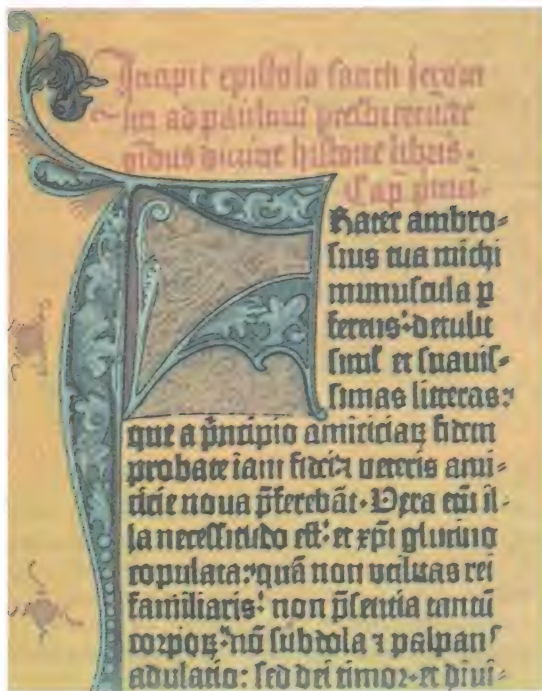 Incipit epistola sancti iheroni
mi ad paulinum presbiterum de
omnibus divine historie libris.
Cap. primū.
Frater ambro⸗
sius tua michi
munuscula ꝑ
ferens· detulit
simꝉ et suauis⸗
simas litteras:
que a p̄ncipio amiciciaꝝ fidem
probate iam fidei ⁊ veteris ami⸗
cicie noua p̄ferebāt· Vera eni ̄ il⸗
la necessitudo est· et xp̄i glutino
copulata: quā non vtilitas rei
familiaris· non p̄sentia tantū
corpoꝝ· nō subdola ⁊ palpans
adulatio: sed dei timor· et diui⸗